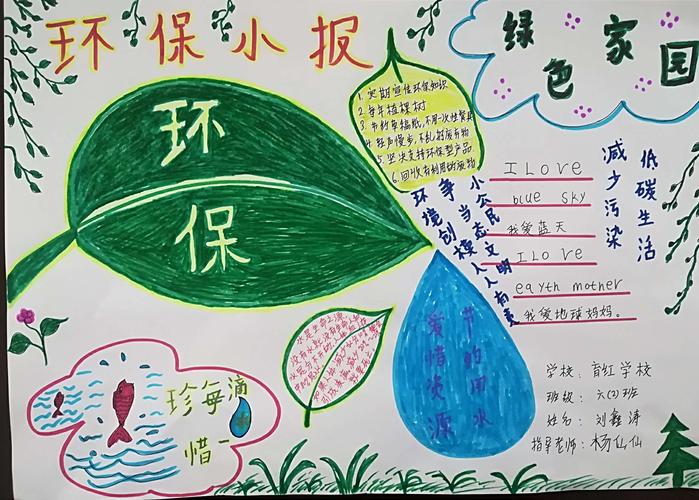 环保小报
绿色家园
环保
1. 定期宣传环保知识
2. 每年植棵树
3. 节约草稿纸,不用一次性餐具
4. 轻声慢步,不乱丢废弃物
5. 坚决支持环保型产品
6. 回收有利用的废物
争当态文明
小公民
环境创模人人有责
I Love
blue sky
我爱蓝天
I Love
eayth mother
我爱地球妈妈。
减少污染
低碳生活
节约用水
爱惜资源
珍惜每一滴
学校:育红学校
班级:六(2)班
姓名:刘鑫涛
指导老师:杨仙仙